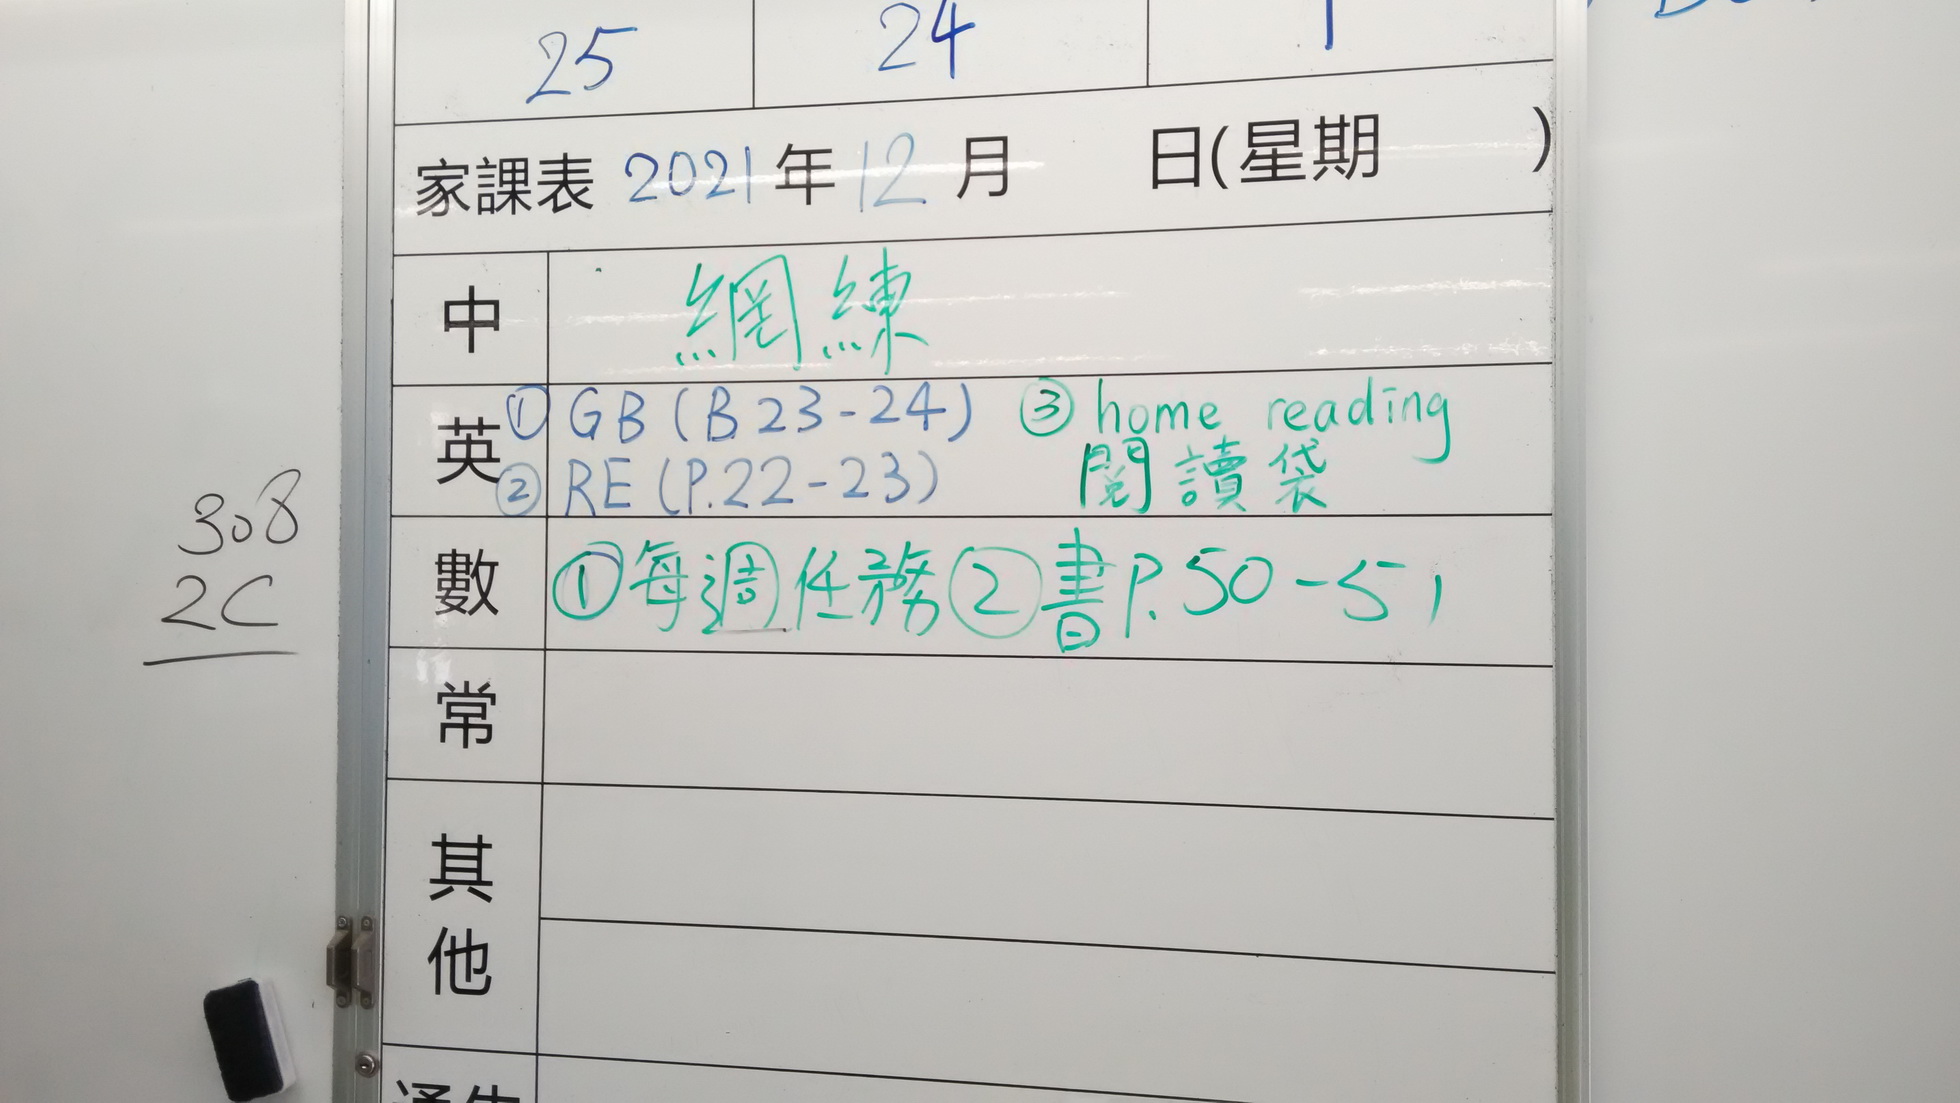 25 24 1
家課表 2021年12月 日(星期 )
中 網練
英 ① GB (B23-24) ③ home reading
② RE (P.22-23) 閱讀袋
數 ①每週任務②書P.50-51
常
其他
通告
308
2C